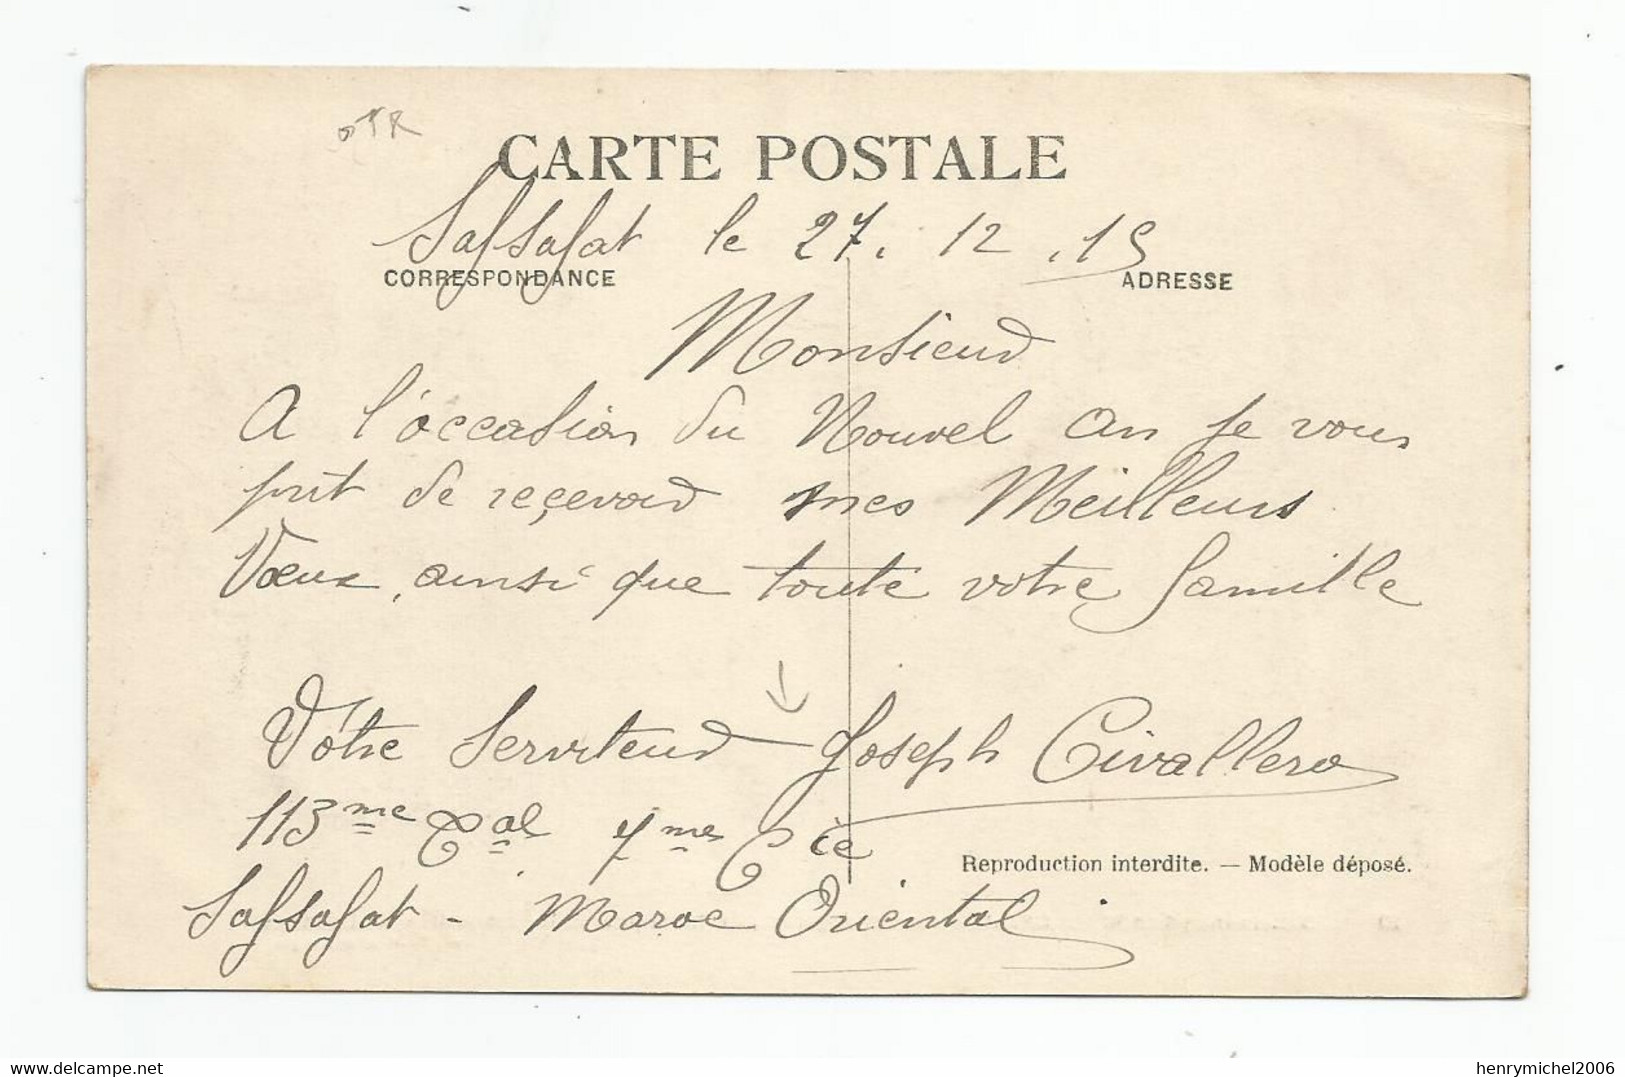 OTR
CARTE POSTALE
Safsafat le 27. 12. 15
CORRESPONDANCE
ADRESSE
Monsieur
A l'occasion du Nouvel an je vous
prit de reçevoir mes Meilleurs
Vœux, ainsi que toute votre famille
Vôtre Serviteur Joseph Civallero
113me Bal 7me Cie
Reproduction interdite. — Modèle déposé.
Safsafat - Maroc Oriental
henrymichel2006